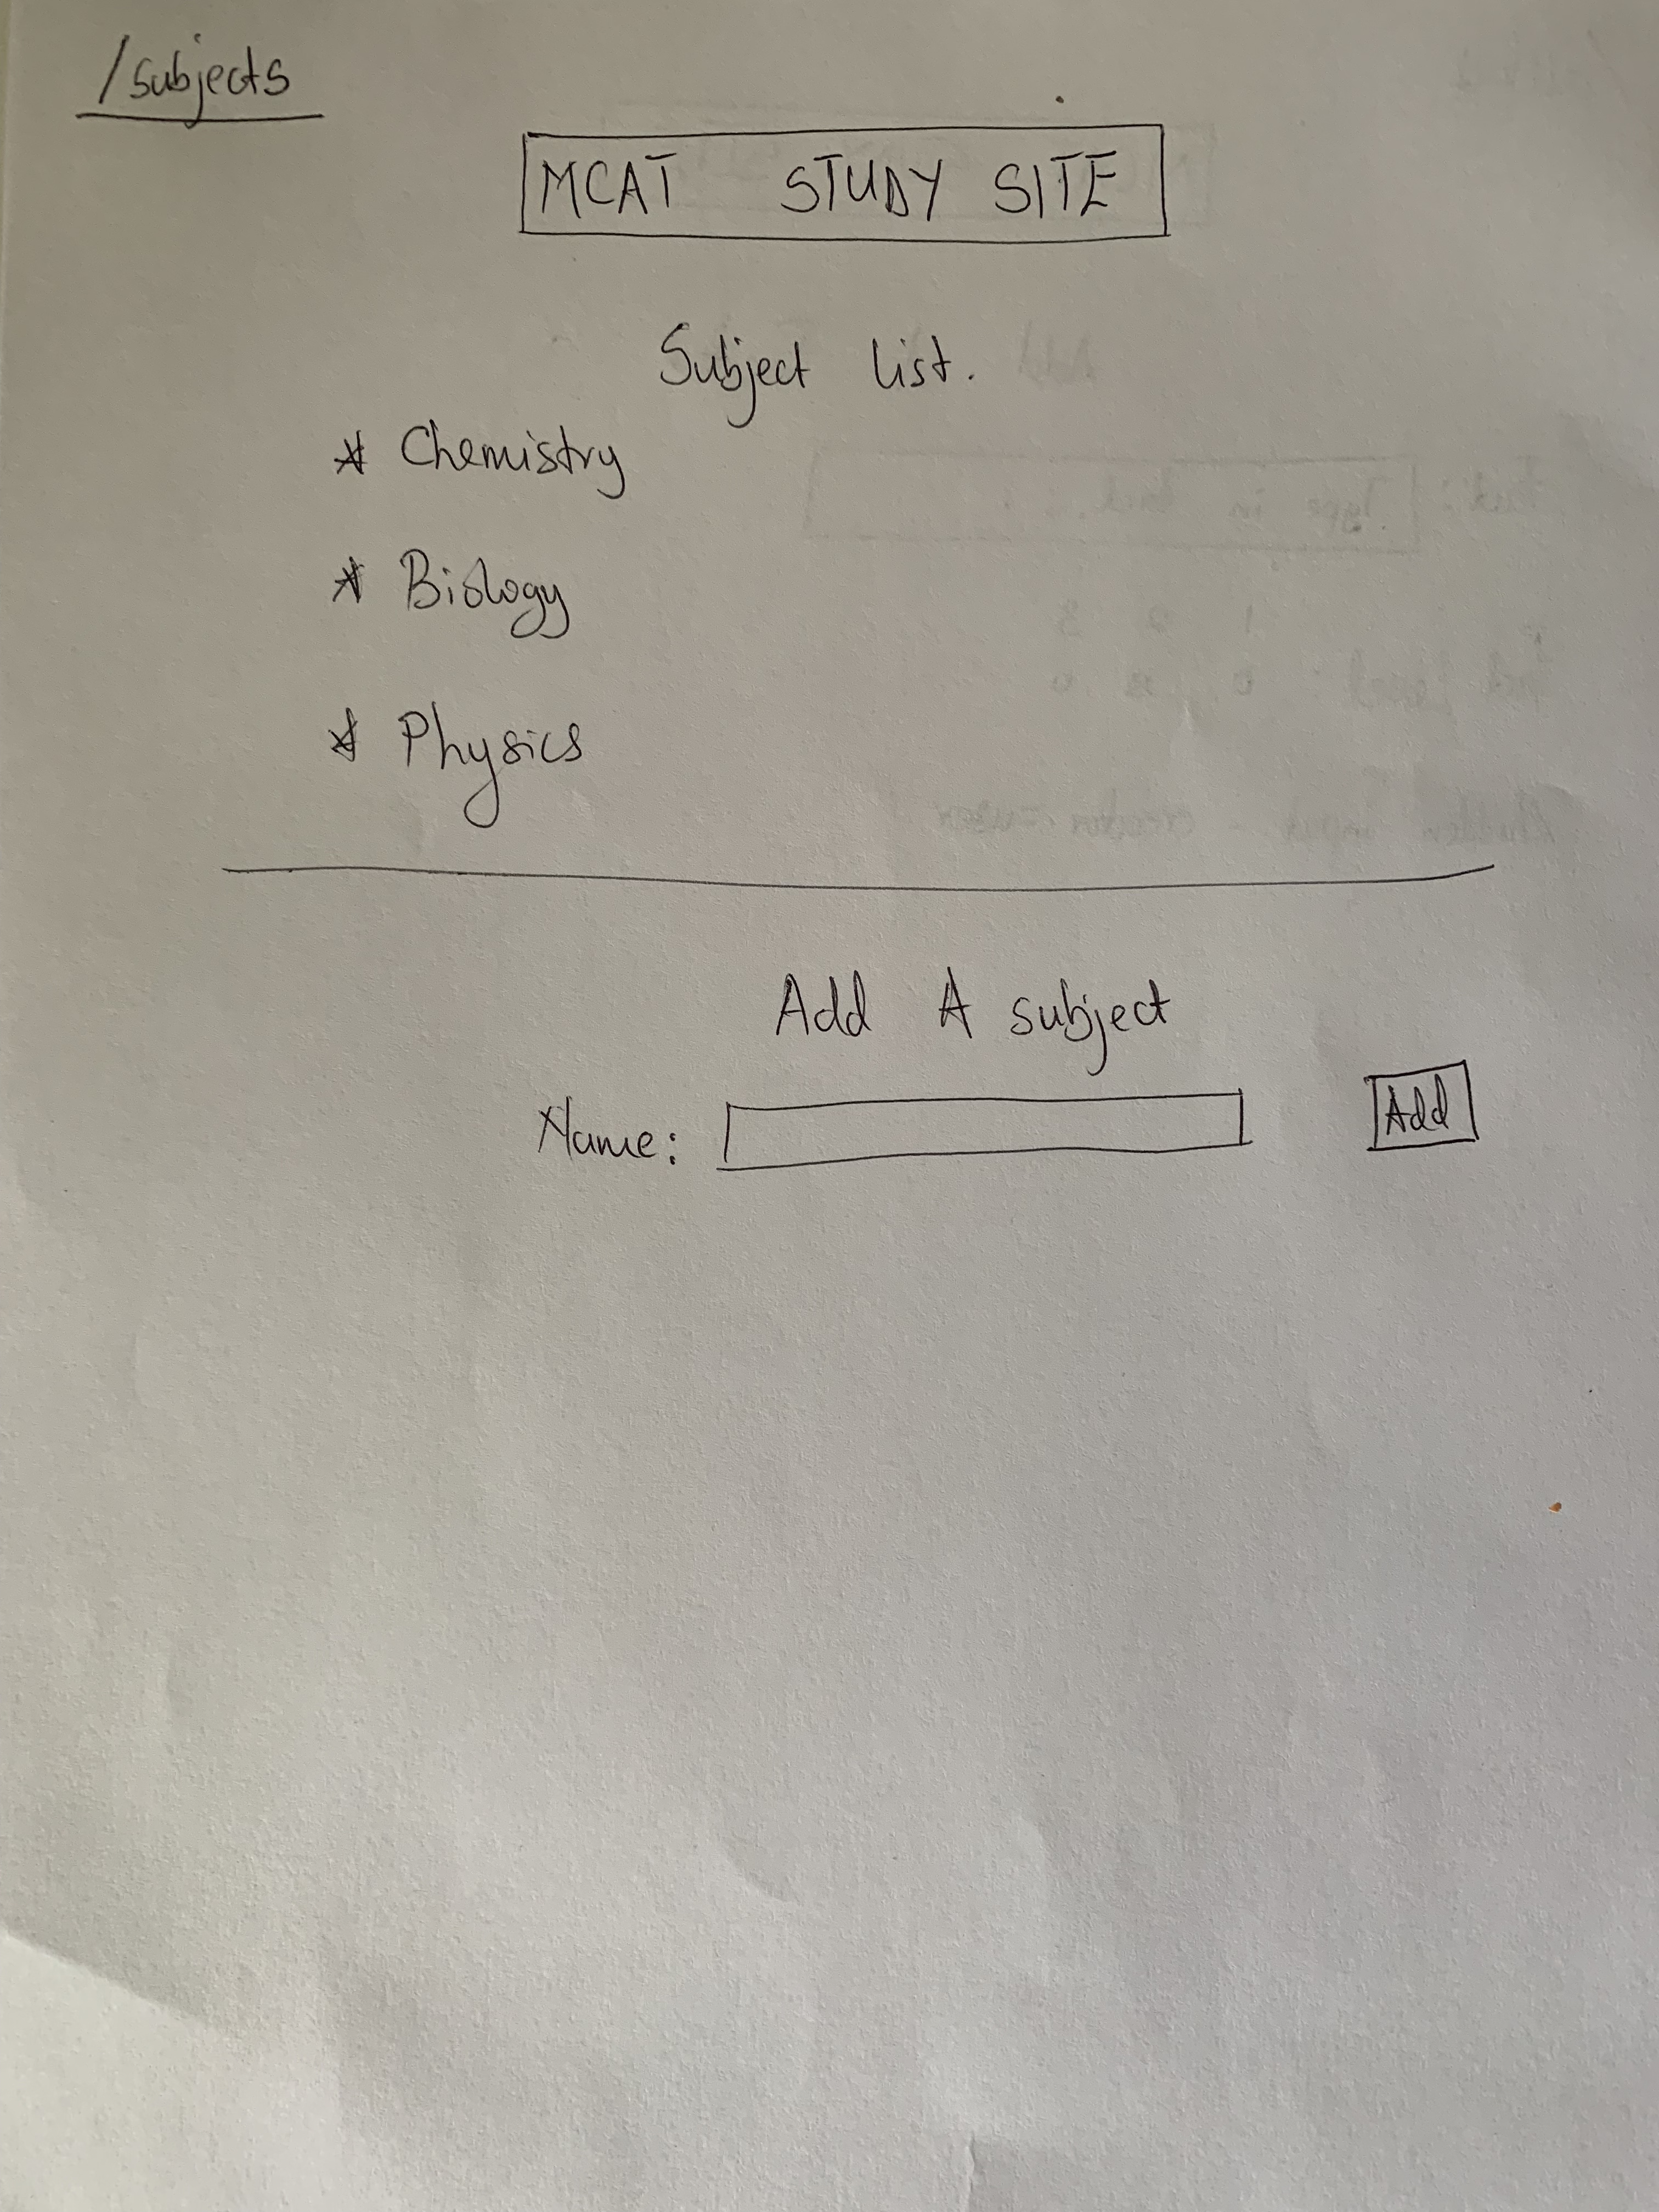 /subjects
MCAT STUDY SITE
Subject list.
* Chemistry
* Biology
* Physics
Add A subject
Name:
Add